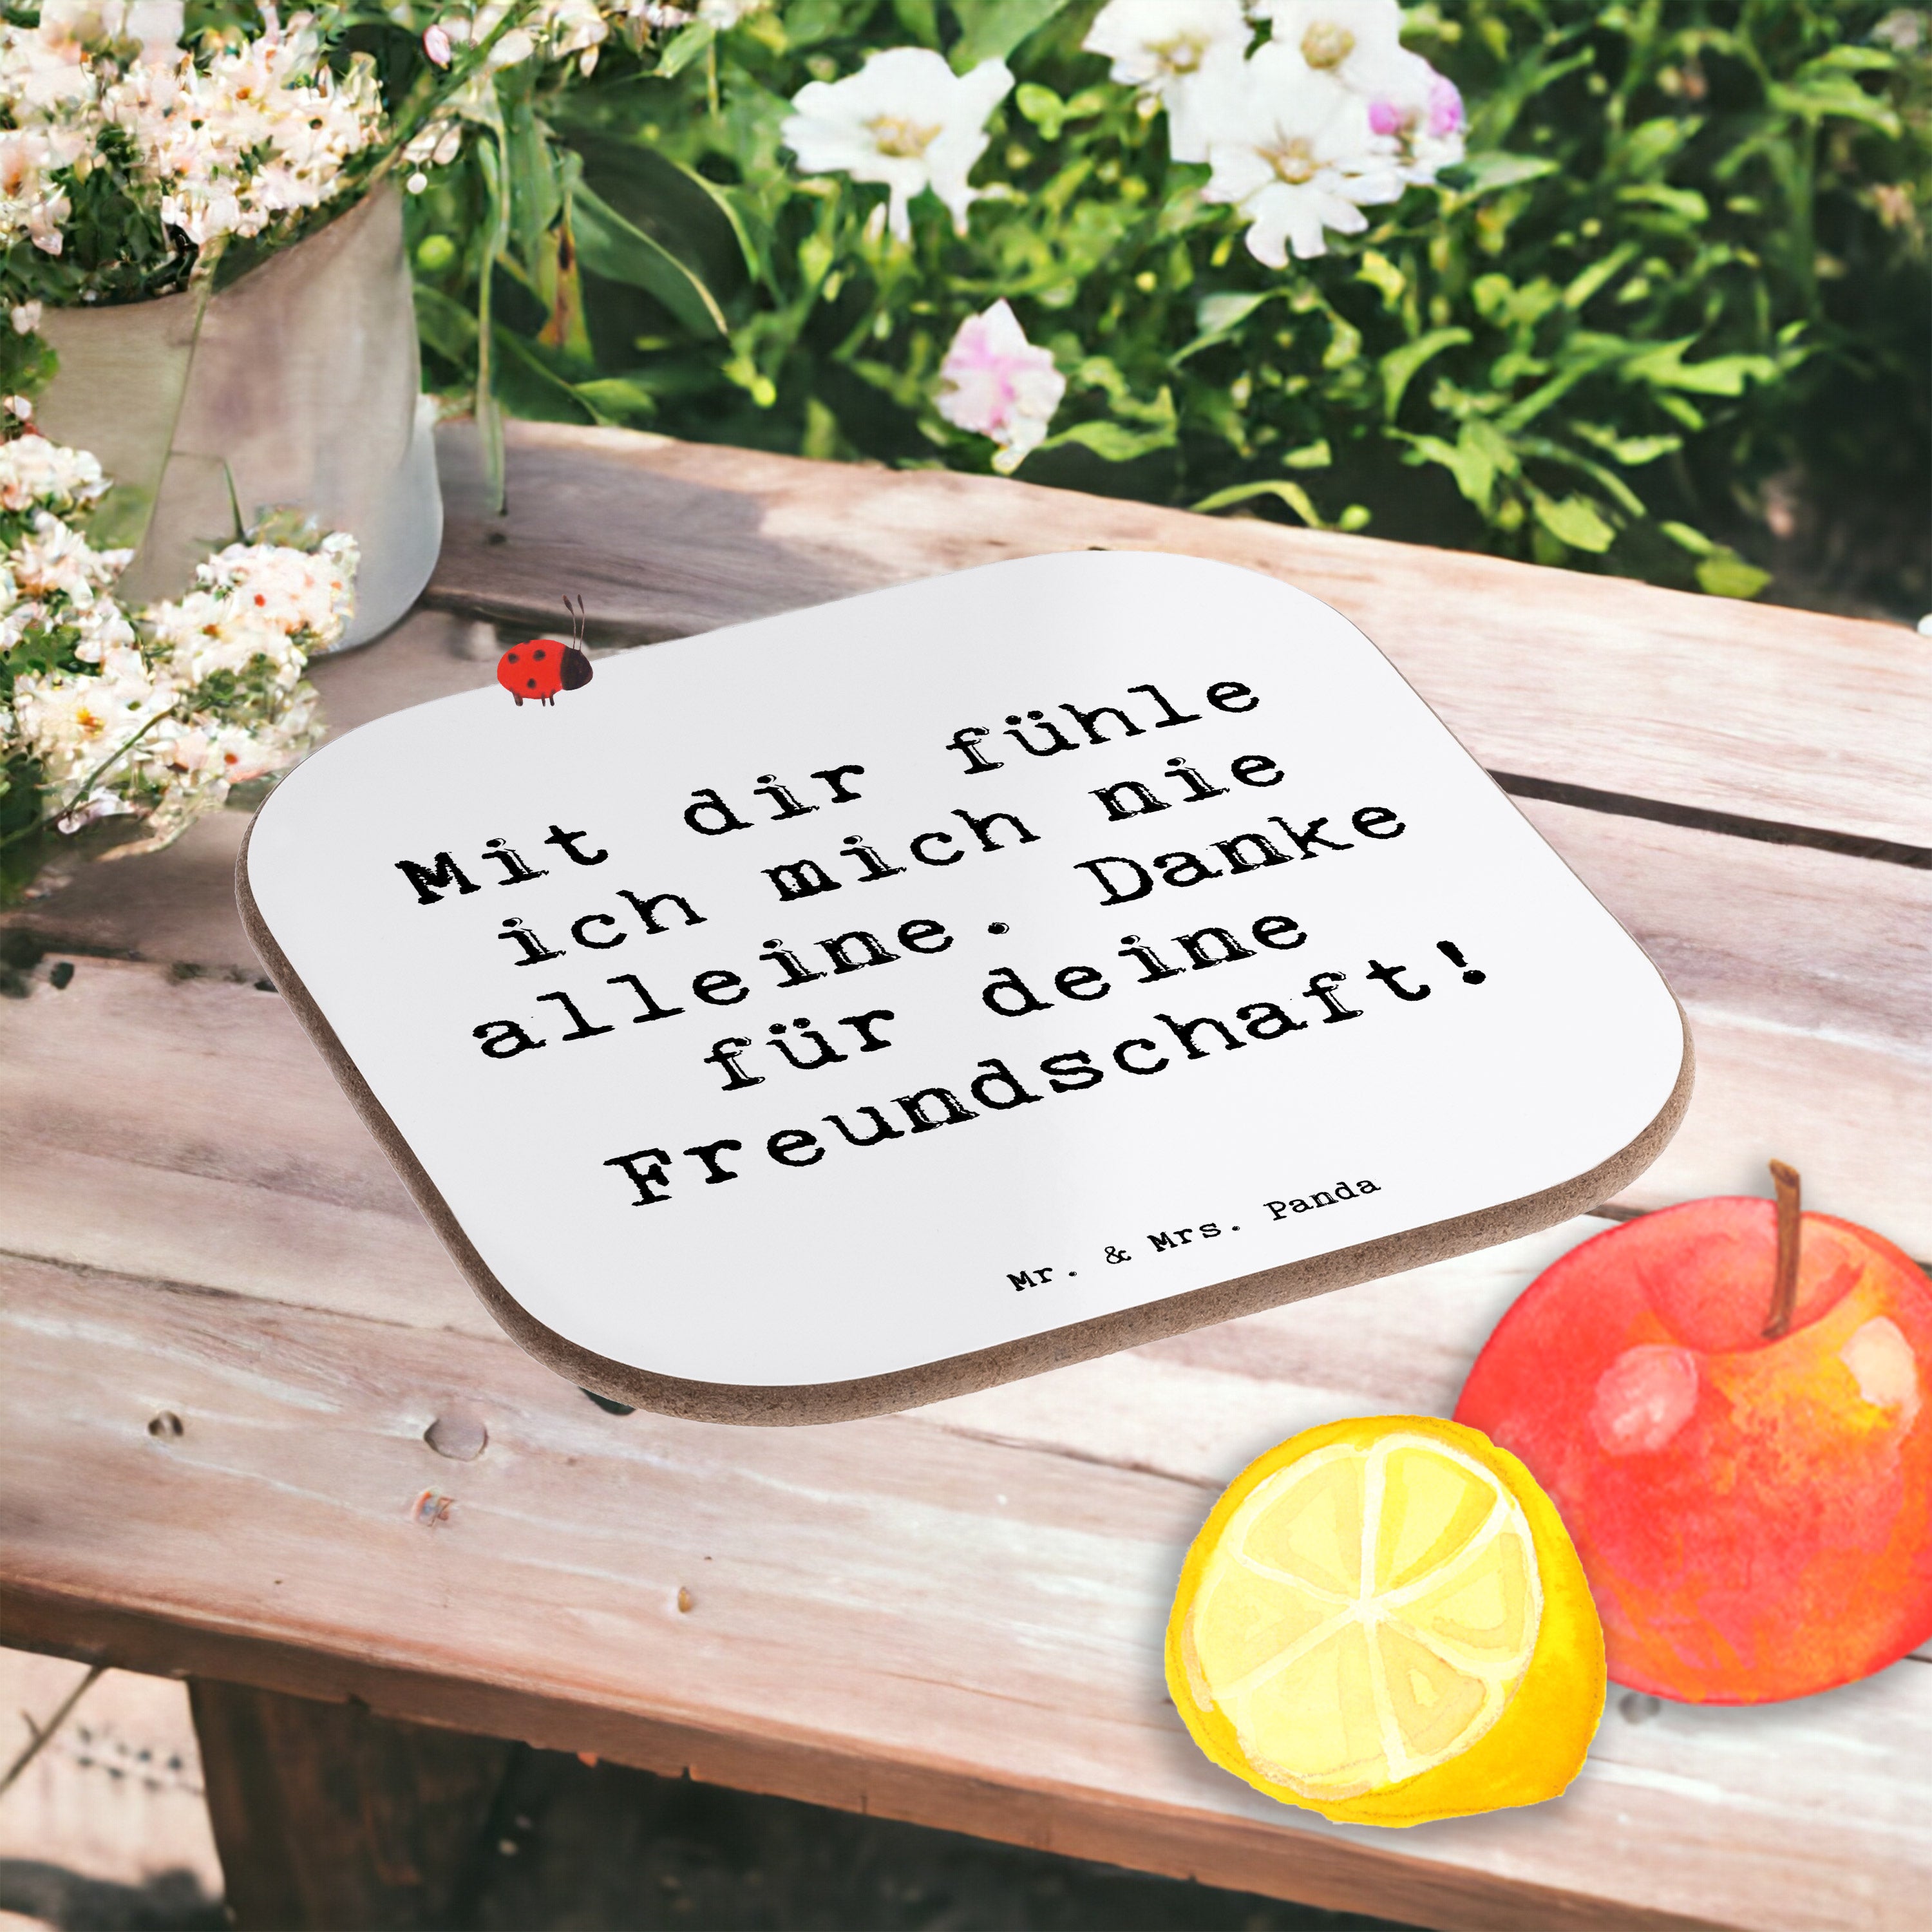 Mit dir fühle
ich mich nie
alleine. Danke
für deine
Freundschaft!
Mr. & Mrs. Panda